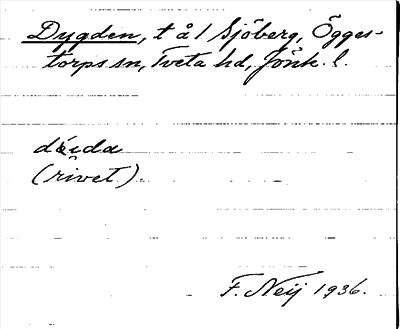 Dygden, t å 1 Sjöberg, Ögges-
torps sn, Tveta hd, Jönk. l.
(rivet).
F. Neij 1936.